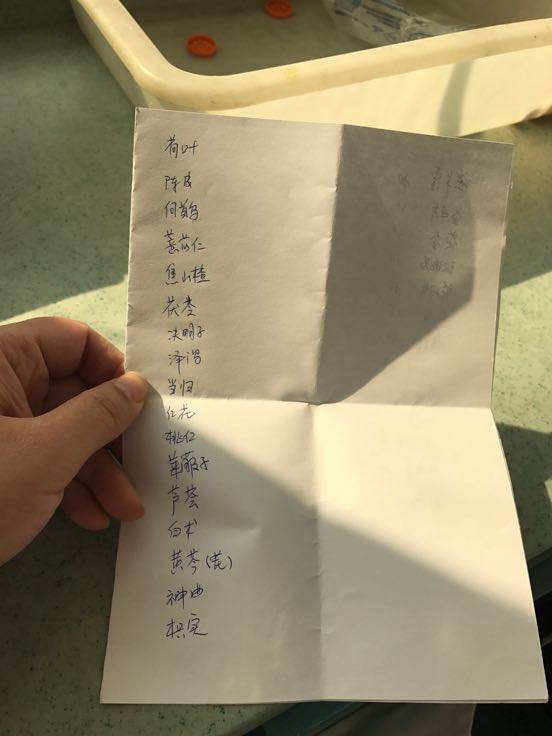 荷叶
陈皮
薏苡仁
焦山楂
茯苓
决明子
泽泻
当归
红花
桃仁
芦荟
白术
黄芩(芪)
神曲
枳实